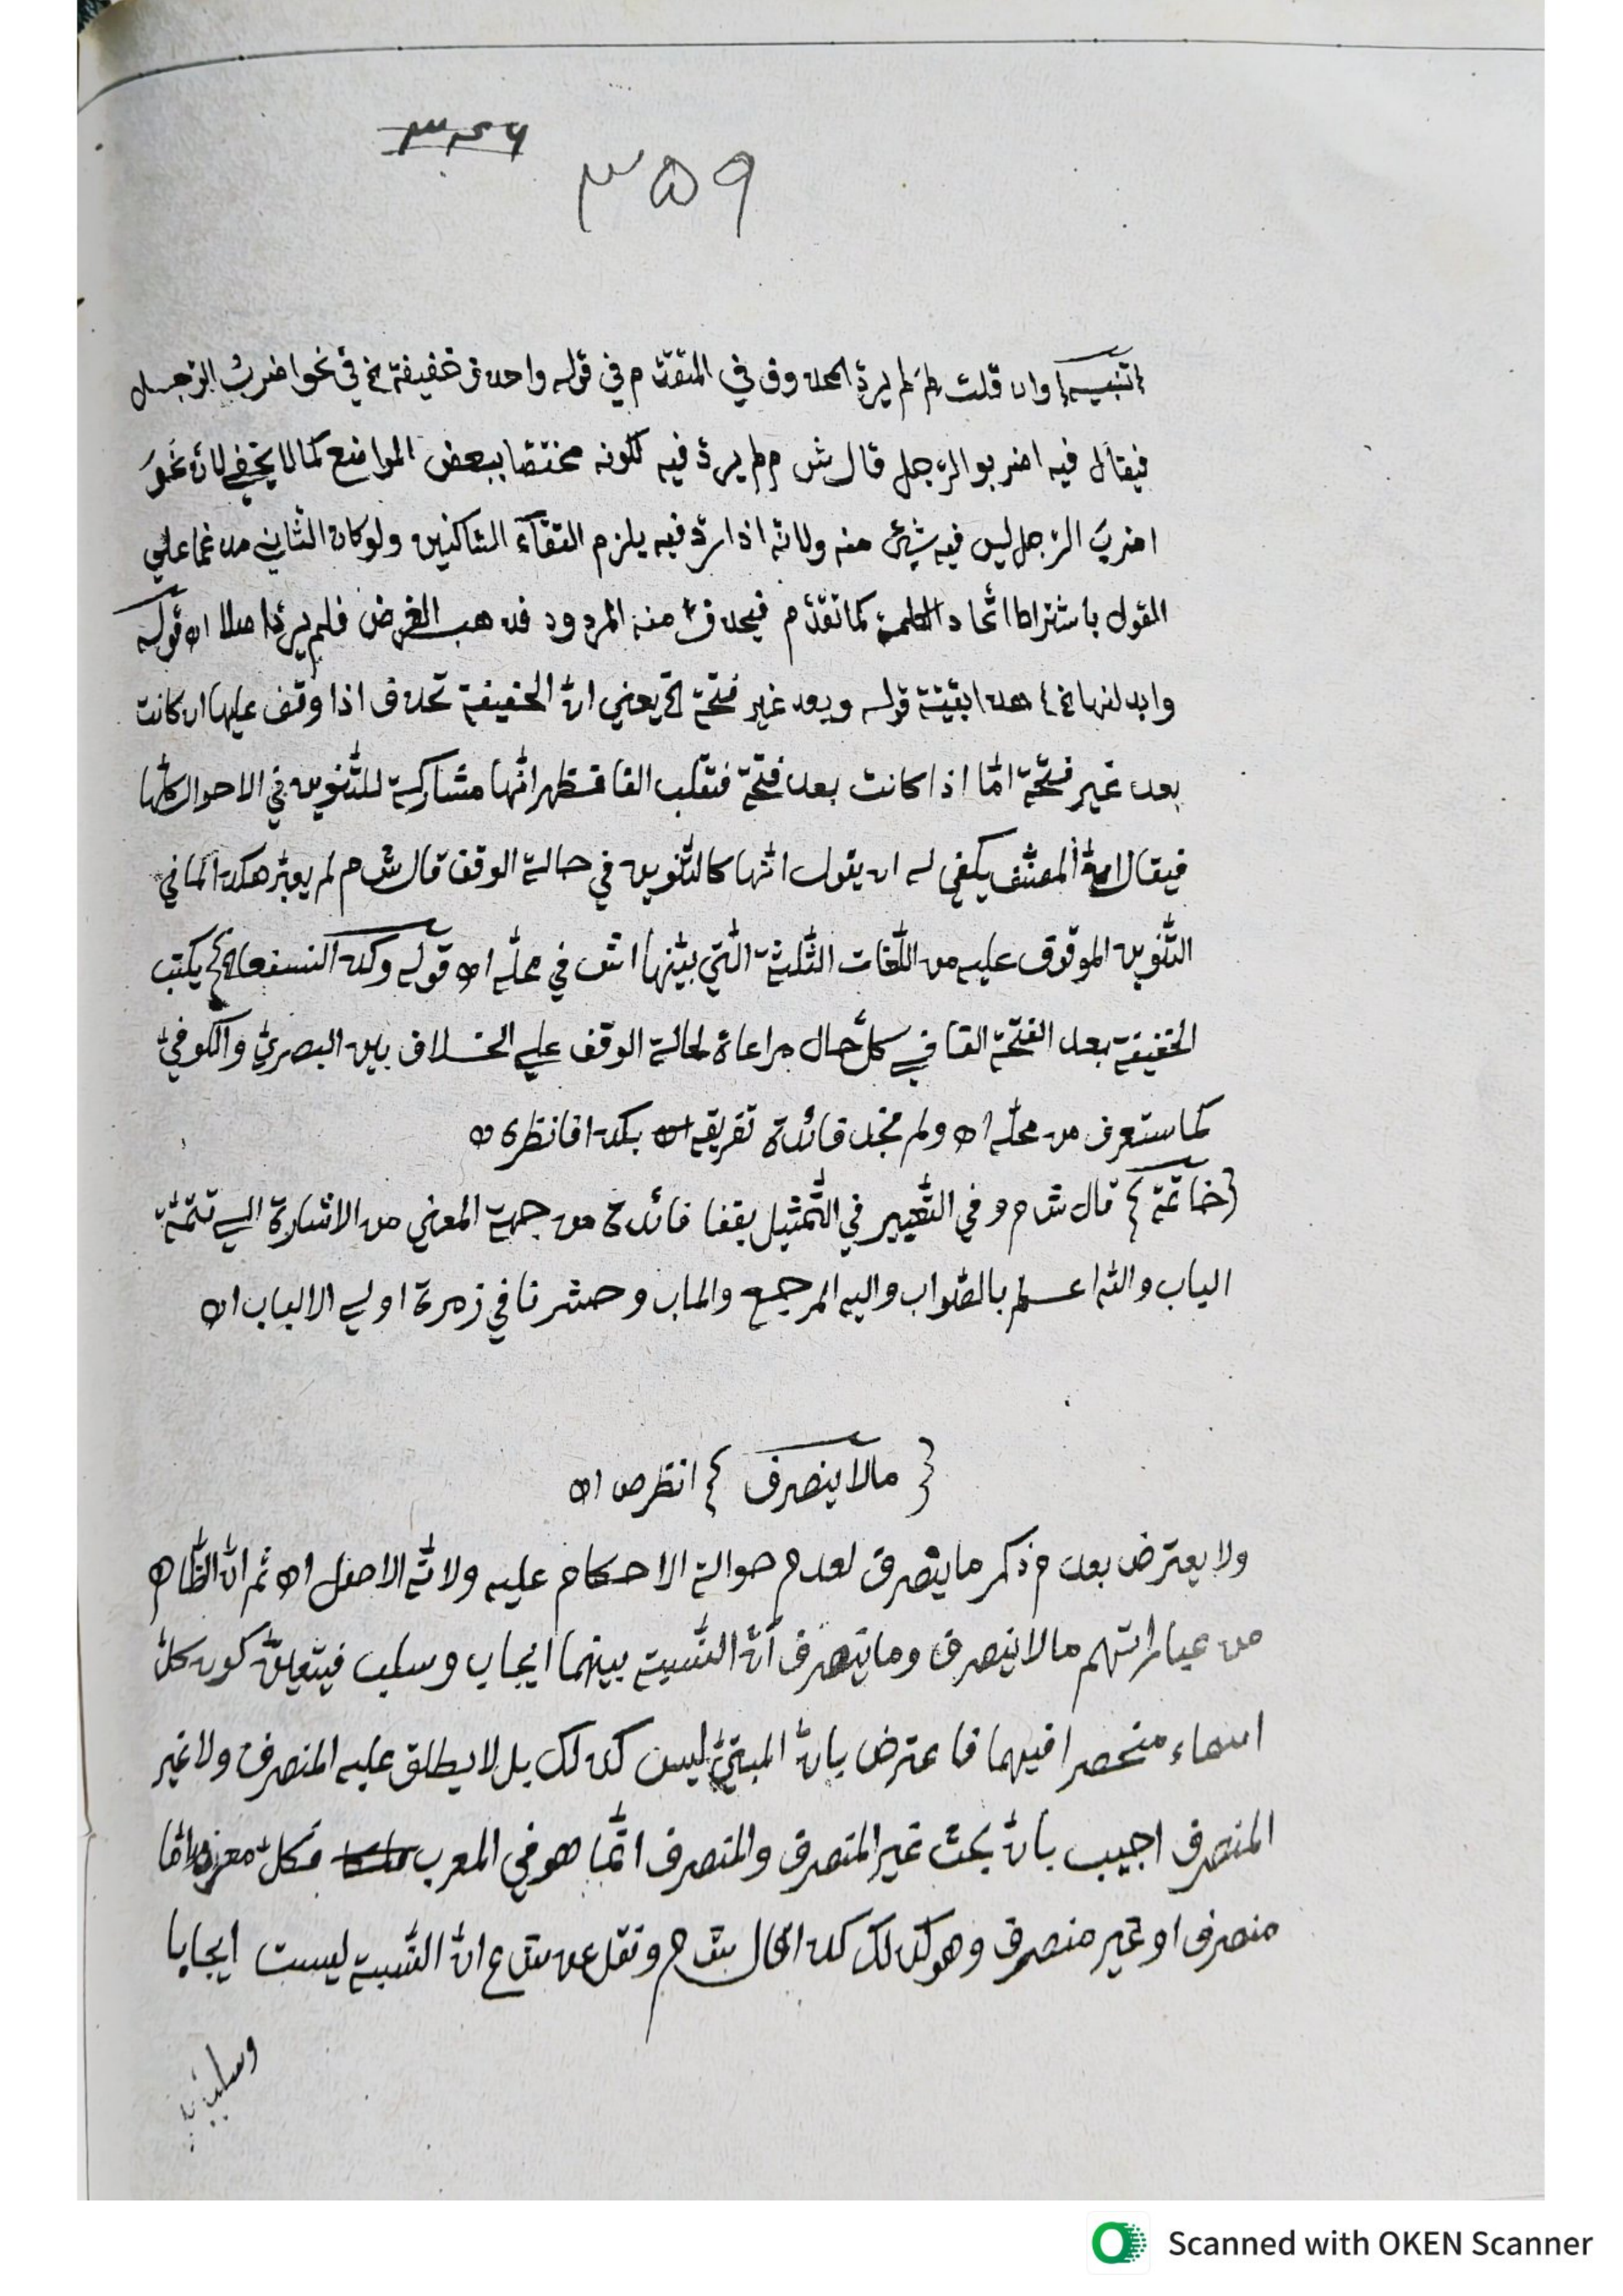 ۳۴۶
۳۵۹
{تنبيه} وان قلت لم لم يردّ المحذوف في المتقدّم في قوله واحذف خفيفة الخ في نحو اضربُ الرّجل
فيقال فيه اضربو الرّجل قال ش م لم يردّ فيه لكونه مختصّا ببعض المواضع كما لا يخفى لانّ نحوَ
اضربَ الرّجل ليس فيه شيئ منه ولانّه اذا ردّ فيه يلزم التقآء السّاكنين ولو كان الثّاني مدغما على
القول باشتراط اتّحاد الكلمة كما تقدّم فيحذف منه المردود فذهب الغرض فلم يردّ اصلا اه قوله
وابدلنها الخ} هذا بقيّة قوله وبعد غير فتحة الخ يعني انّ الخفيفة تحذف اذا وقف عليها ان كانت
بعد غير فتحة امّا اذا كانت بعد فتحة فتقلب الفا فتظهر انّها مشاركة للتّنوين في الاحوال كلّها
فيقال انّ المصنّف يكفي له ان يقول انّها كالتّنوين في حالة الوقف قال ش م لم يعبّر هكذا لما في
التّنوين الموقوف عليه من اللّغات الثّلثة الّتي بيّنها الش في محلّه اه قوله وكذا لنسفعا الخ} يكتب
الخفيفة بعد الفتحة الفا في كلّ حال مراعاة لحالة الوقف على الخلاف بين البصريّ والكوفيّ
كما ستعرف من محلّه اه ولم نجد فائدة تفريقه بكذا فانظره اه
{خاتمة} قال ش م و في التّعبير في التّمثيل بقفا فائدة من جهة المعني من الاشارة الى تتمّة
الباب والله اعلم بالصّواب واليه المرجع والماب وحشرنا في زمرة اولي الالباب اه
{مالا ينصرف} انظر ص اه
ولا يعترض بعدم ذكر ما ينصرف لعدم حوالة الاحكام عليه ولانّه الاصل اه ثم انّ الظّاهر
من عباراتهم مالا ينصرف وما ينصرف انّ النّسبة بينهما ايجاب وسلب فيتعلّق كون كلّ
اسماء منحصرا فيهما فاعترض بانّ المبنيّ ليس كذلك بل لا يطلق عليه المنصرف ولا غير
المنصرف اجيب بانّ بحث غير المنصرف والمنصرف انّما هو في المعرب فكلّ معرب امّا
منصرف او غير منصرف وهو كذلك كذا قال ش م ونقل عن ش ع انّ النّسبة ليست ايجابا
وسلبا
Scanned with OKEN Scanner